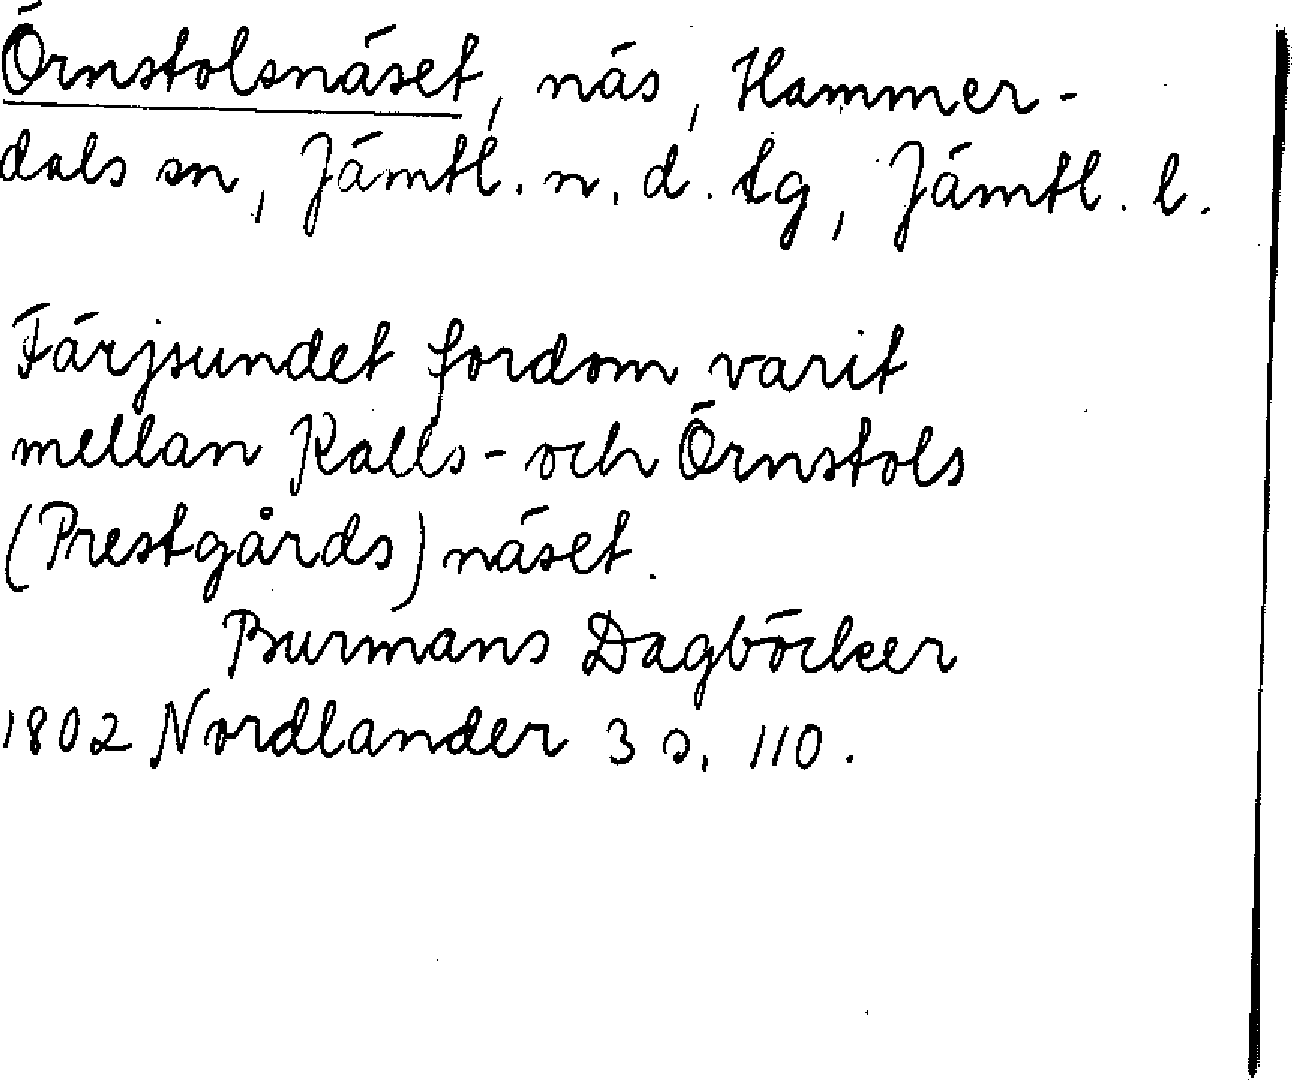 Örnstolsnäset, näs, Hammer-
dals sn, Jämtl. n. d. tg, Jämtl. l.
Färjsundet fordom varit
mellan Kalls- och Örnstols
(Prestgårds) näset.
Burmans Dagböcker
1802 Nordlander 3 s. 110.